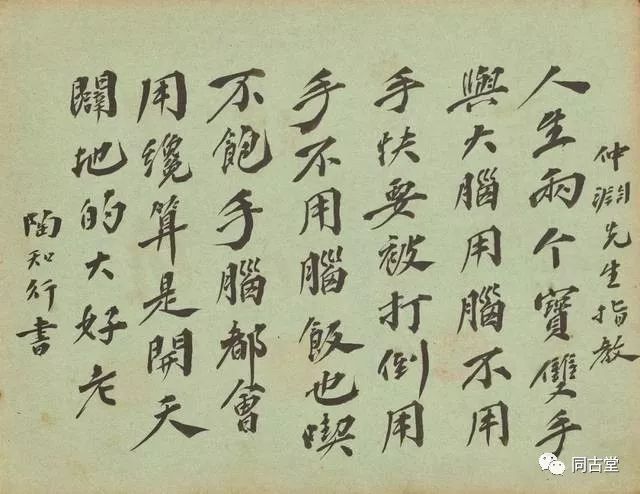 仲淵先生指教
人生兩个寶雙手
與大腦用腦不用
手快要被打倒用
手不用腦飯也喫
不飽手腦都會
用纔算是開天
闢地的大好老
陶知行書
同古堂